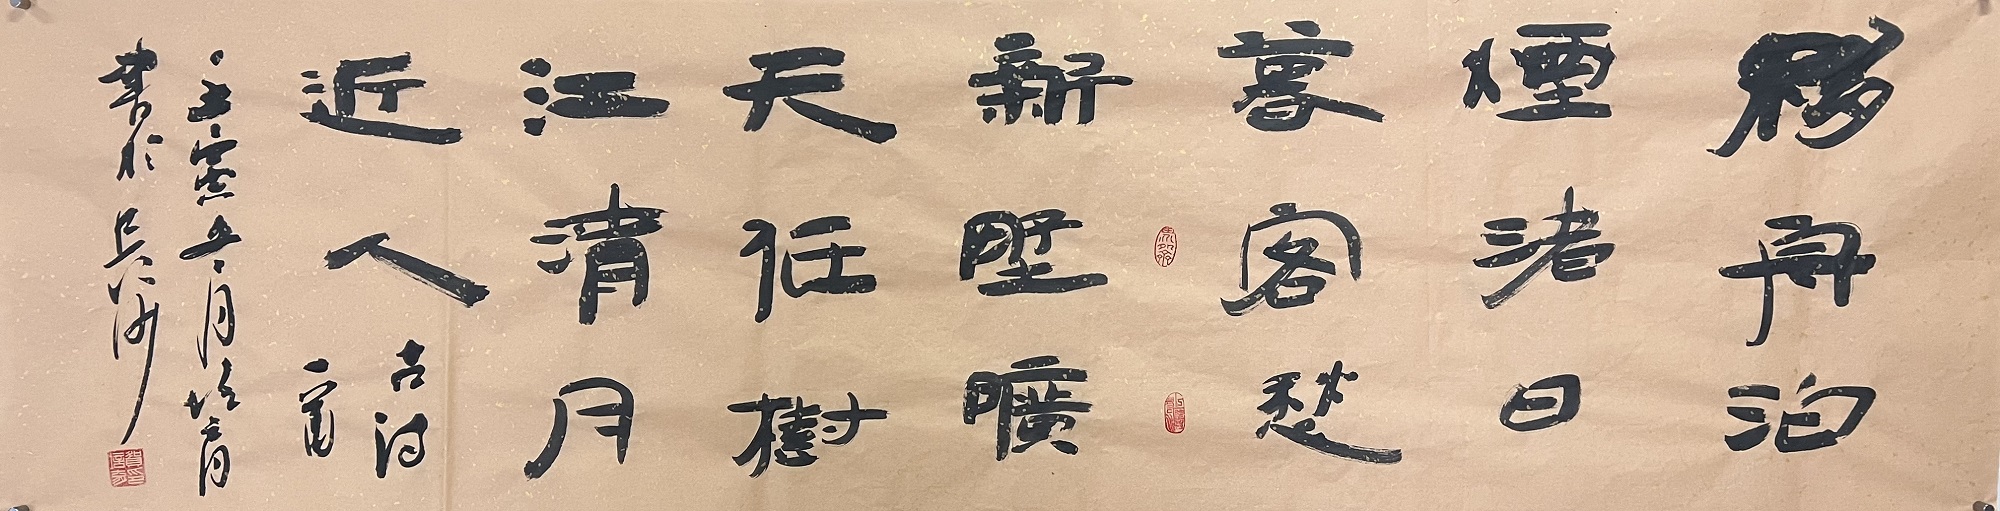 移舟泊
煙渚日
暮客愁
新野曠
天低樹
江清月
近人
古詩
一首
壬寅冬月
書於長沙